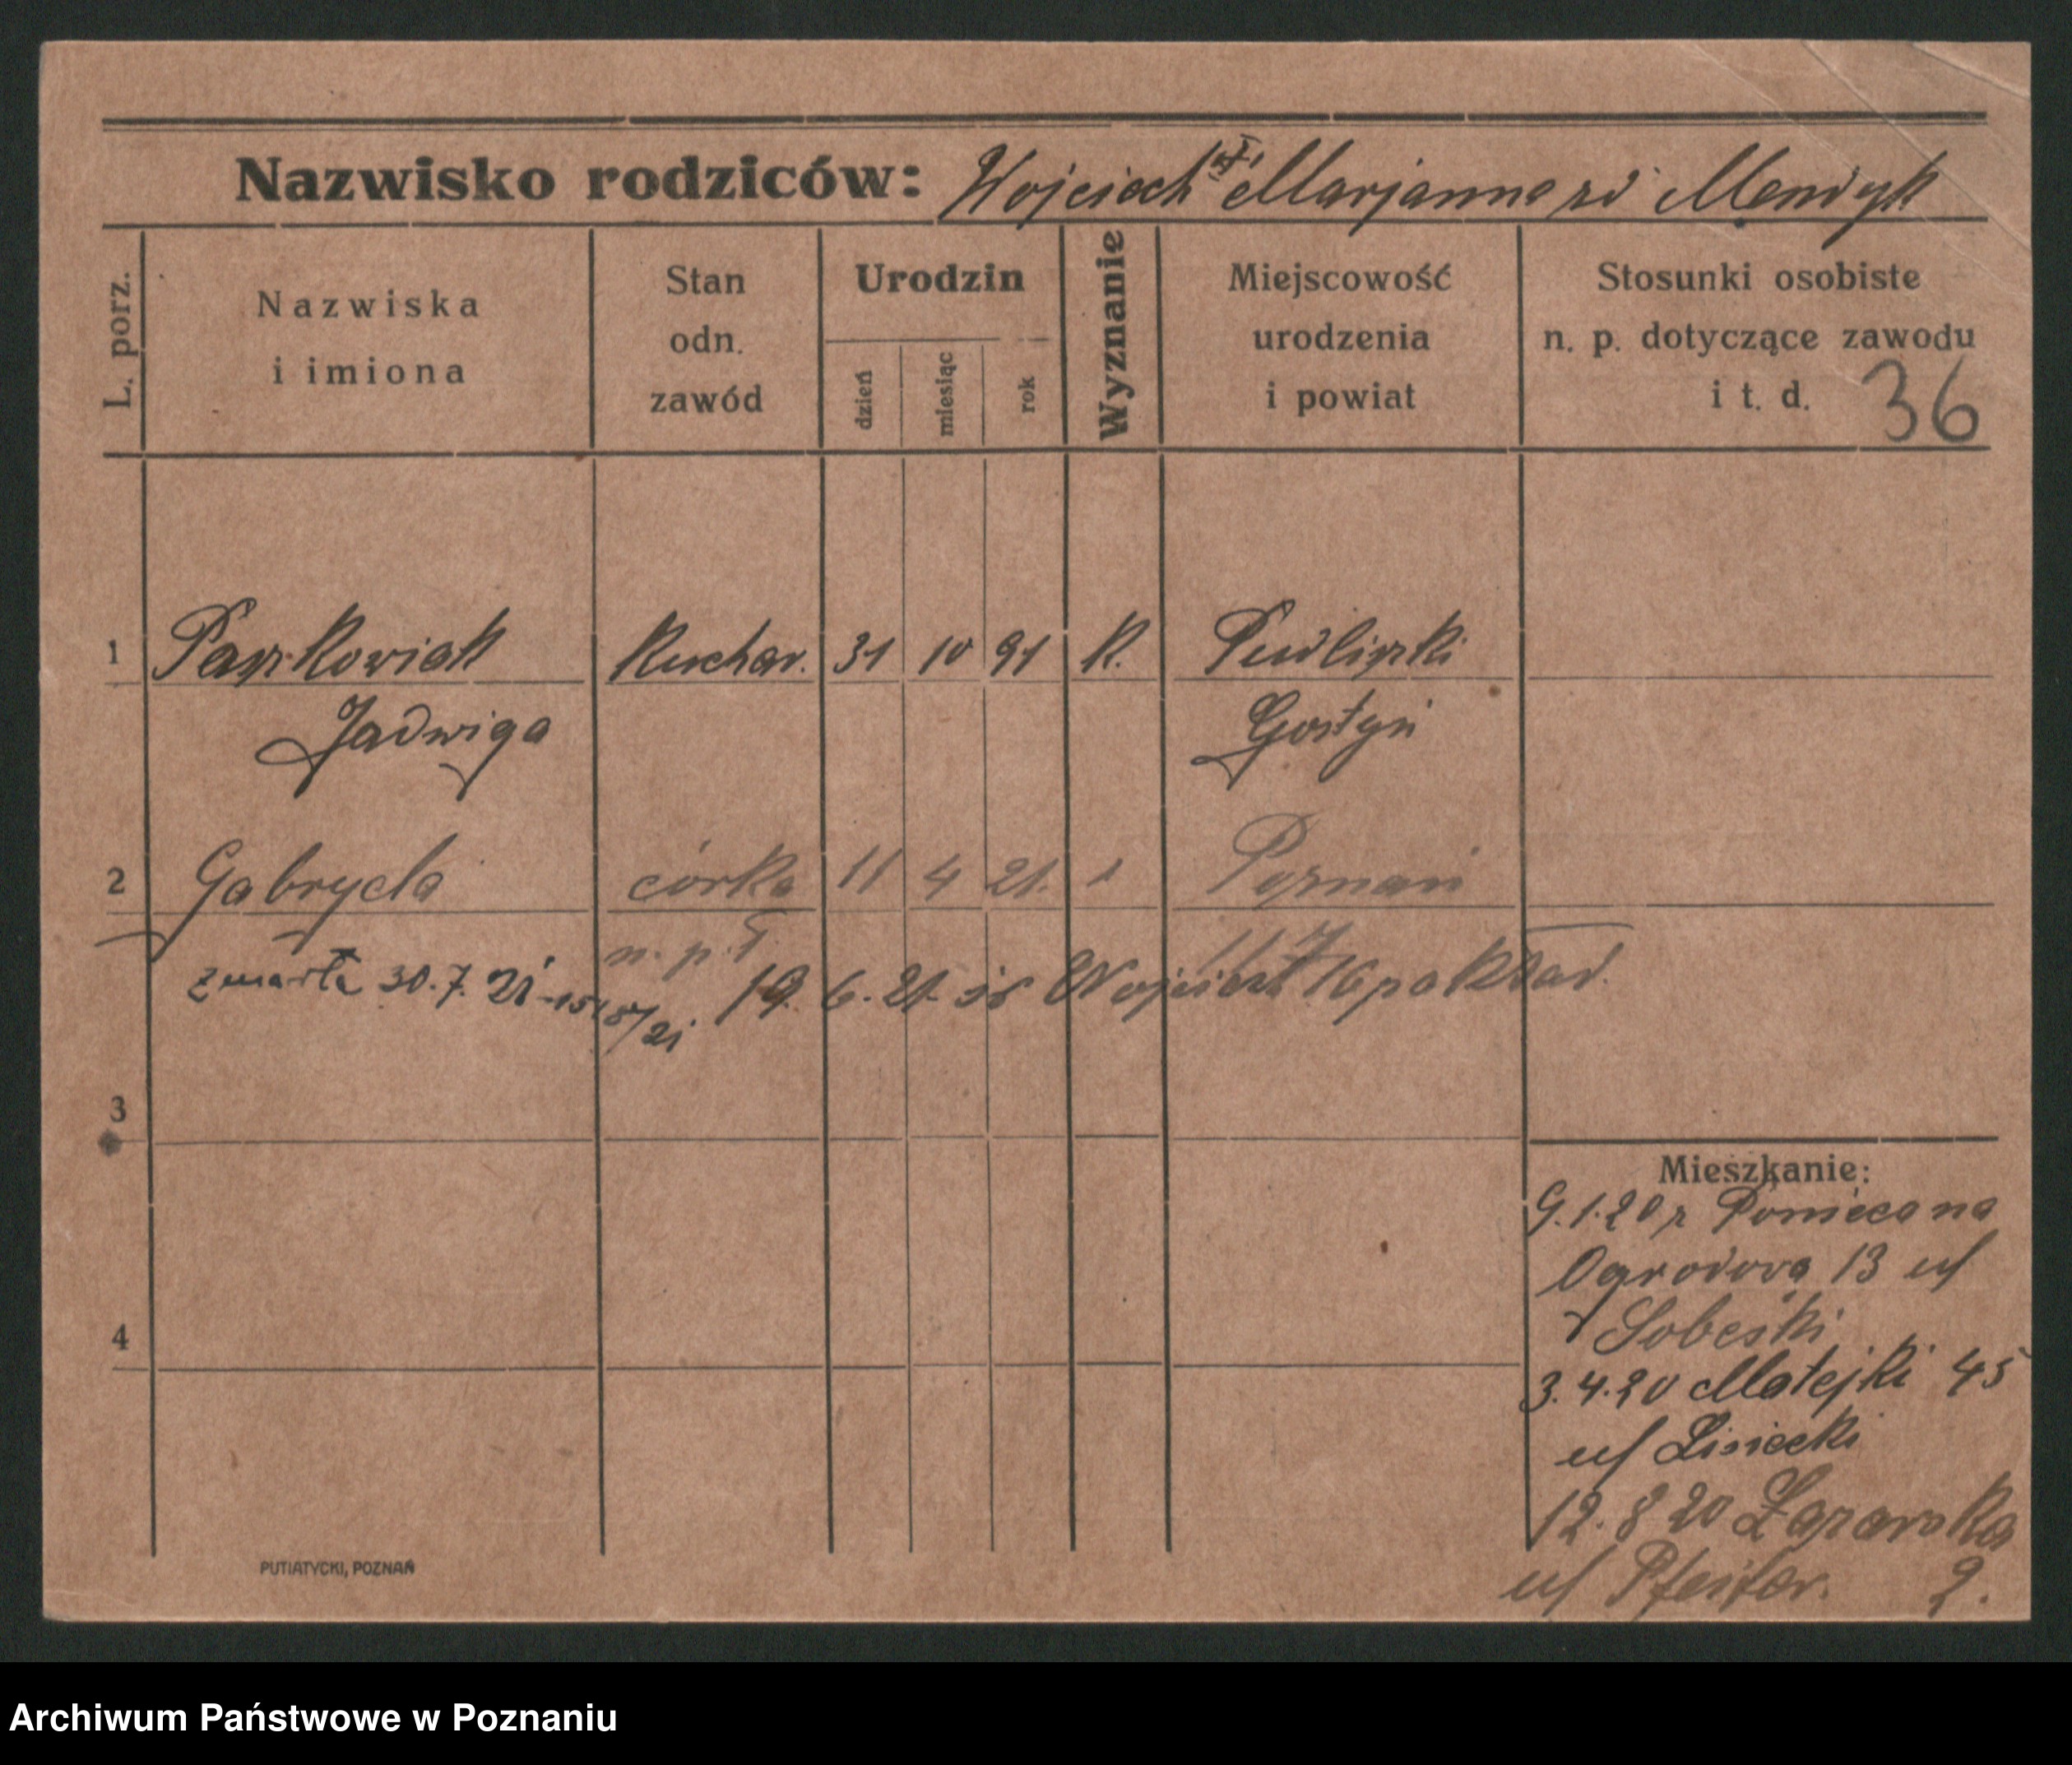 Nazwisko rodziców: Wojciech i Marjanna zd Mendyk
L. porz.
Nazwiska i imiona
Stan odn. zawód
Urodzin
dzień
miesiąc
rok
Wyznanie
Miejscowość urodzenia i powiat
Stosunki osobiste n. p. dotyczące zawodu i t. d.
36
1 Paszkowiak Kuchar. 31 10 91 K. Pudliszki
Jadwiga Gostyń
2 Gabryela córka 11 4 21. Poznań
zmarła 30.7.21
19. 6. 21 Wojciech
3
4
Mieszkanie:
9.1.20 z Ponieca na
Ogrodowa 13 u/
Sobeski
3.4.20 Matejki 45
u/ Lisiecki
12.8 20 Łazarska
u/ Pfeifer. 2.
PUTIATYCKI, POZNAŃ
Archiwum Państwowe w Poznaniu